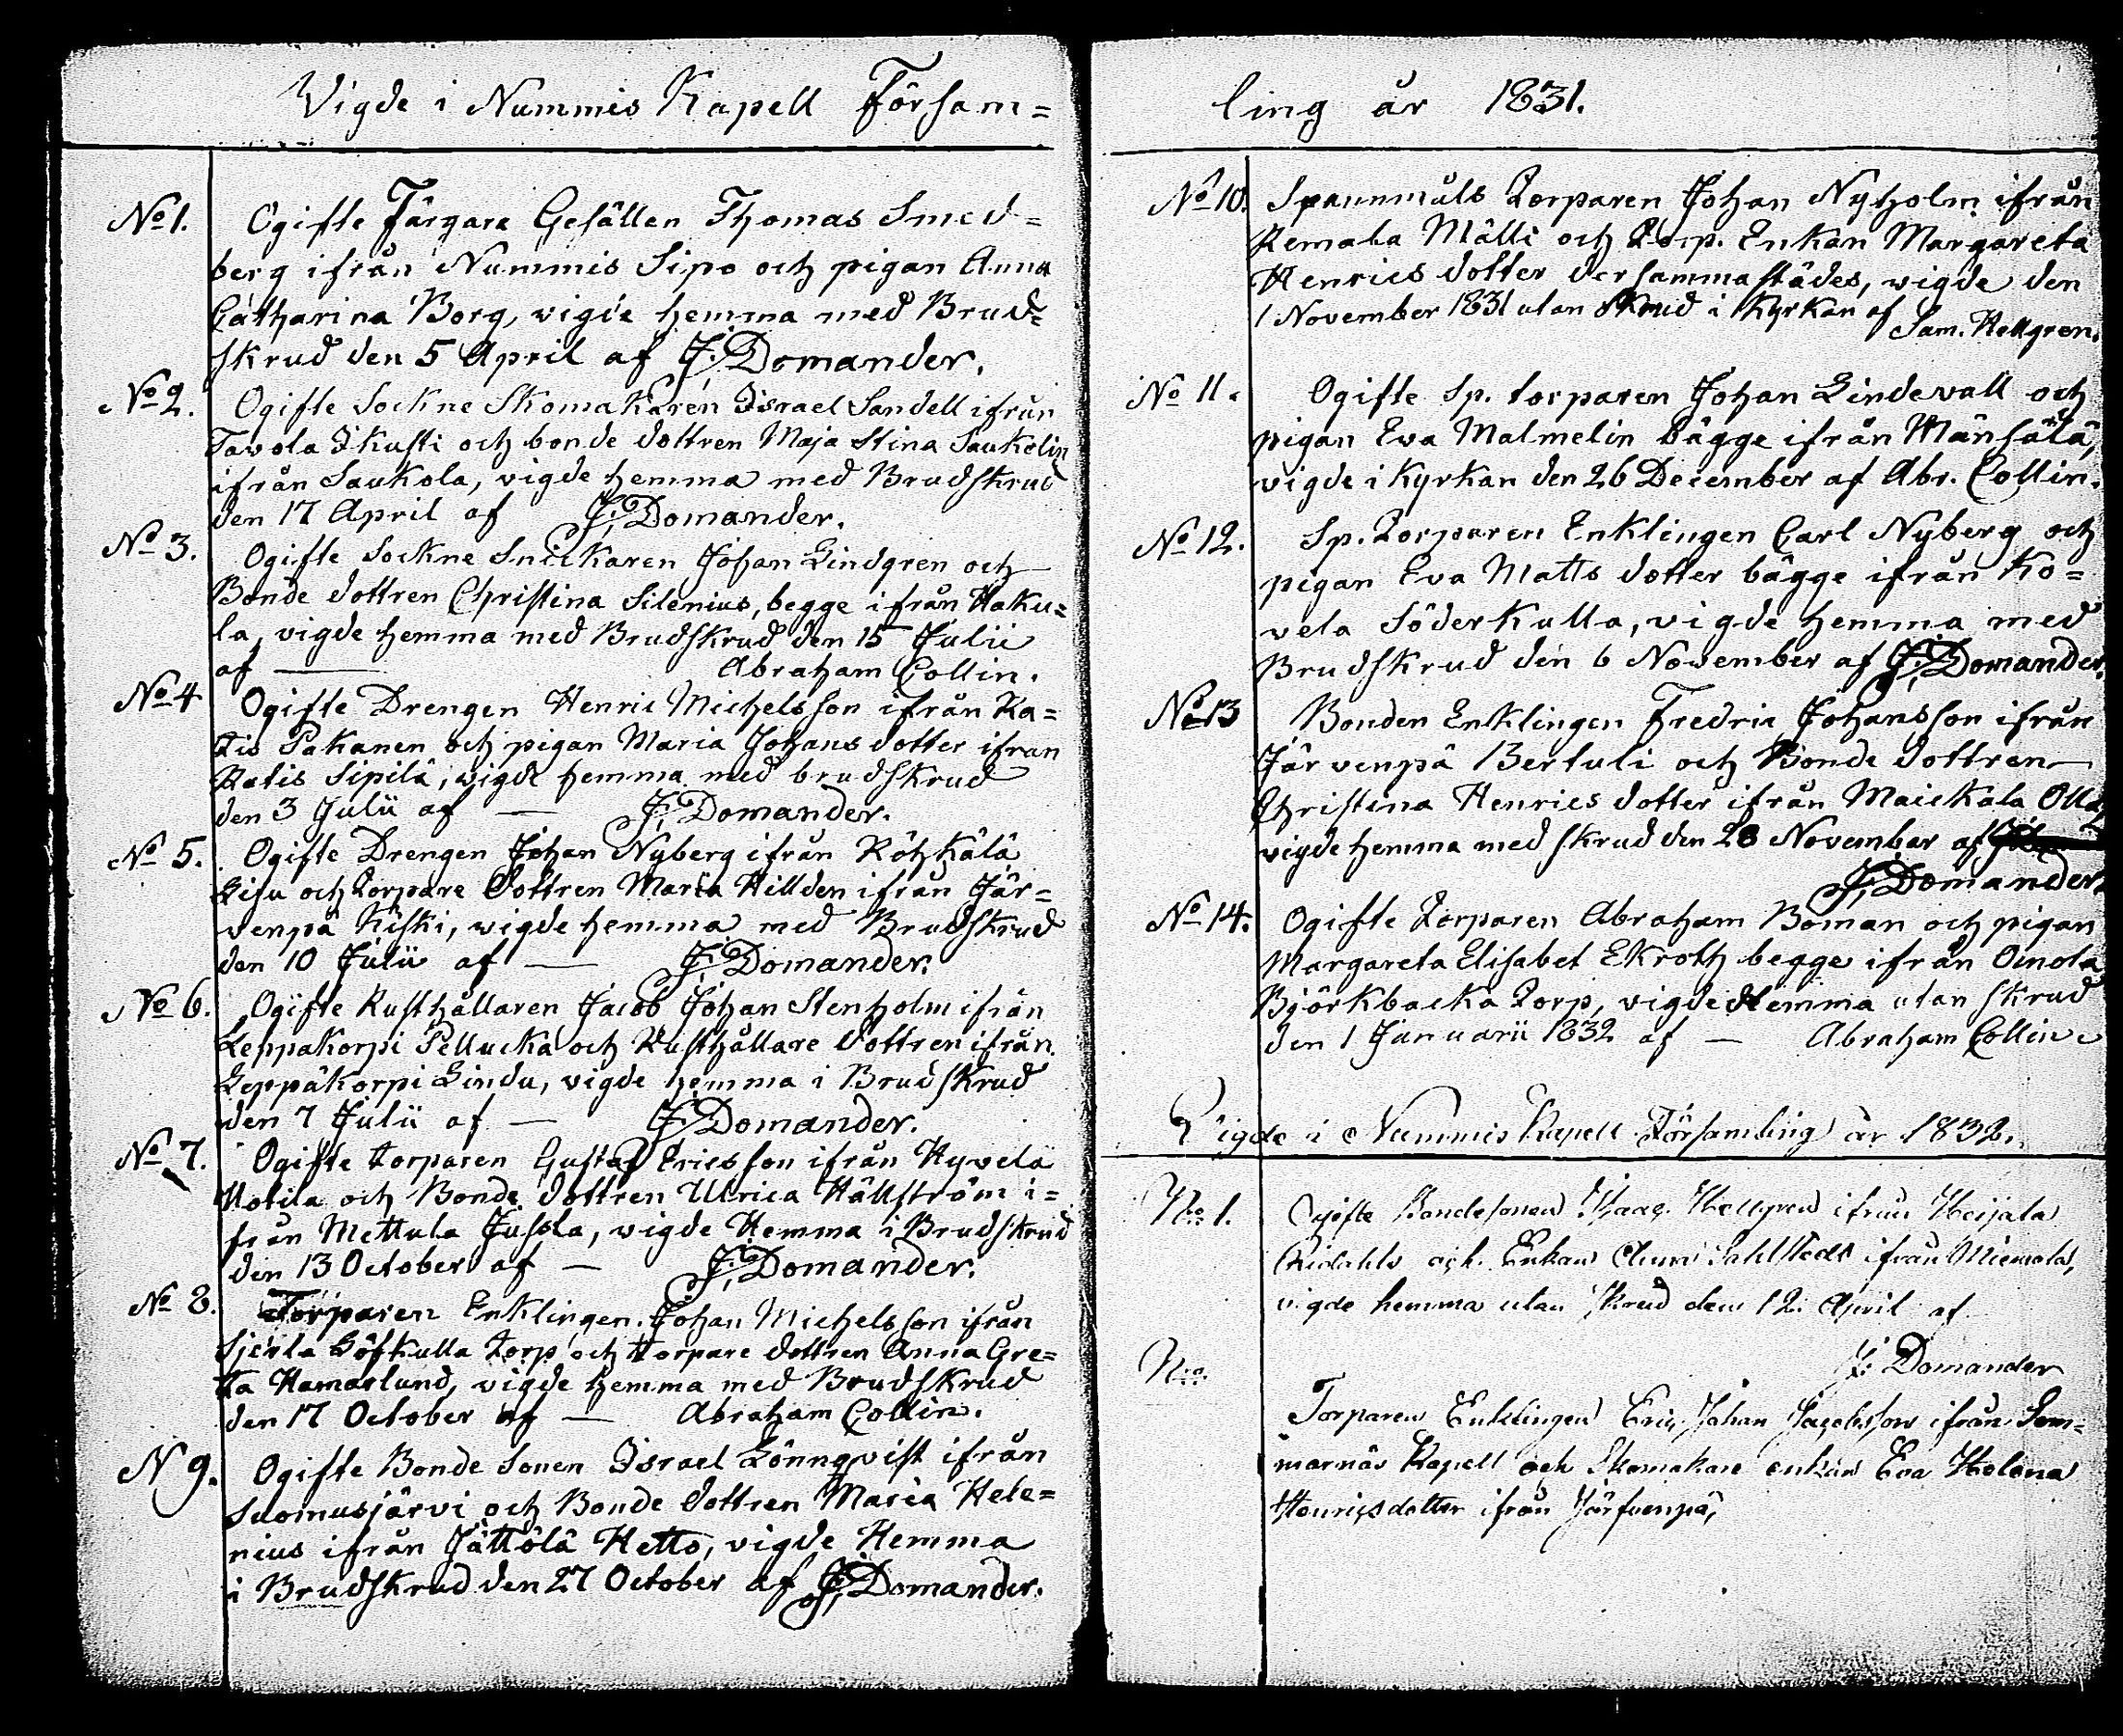 Vigde i Nummis Kapell Försam=
No 1. Ogifte Färgare Gesällen Thomas Smed=
berg ifrån Nummis Sipo och pigan Anna
Catharina Borg, vigde hemma med Brud=
skrud den 5 April af J: Domander.
No 2. Ogifte Sockne Skomakaren Israel Sandell ifrån
Tavola Ikusti och bonde dottren Maja Stina Saukelin
ifrån Saukola, vigde hemma med Brudskrud
den 17 April af J: Domander.
No 3. Ogifte Sockne Snickaren Johan Lindgren och
Bonde dottren Christina Silenius, begge ifrån Haku=
la, vigde hemma med Brudskrud den 15 Julii
af — Abraham Collin.
No 4 Ogifte Drengen Henric Michelsson ifrån Ra=
tis Pakanen och pigan Maria Johans dotter ifran
Ratis Sipilä, vigde hemma med brudskrud
den 3 Julii af — J: Domander.
No 5. Ogifte Drengen Johan Nyberg ifrån Röhkälä
Lisu och torpare Dottren Maria Hillden ifrån Jär=
venpä Kiski, vigde hemma med Brudskrud
den 10 Julii af — J: Domander.
No 6. Ogifte Rusthållaren Jacob Johan Stenholm ifrån
Leppäkorpi Pellucka och Rusthållare dottren ifrån
Leppäkorpi Lindu, vigde hemma i Brudskrud
den 7 Julii af — J: Domander.
No 7. Ogifte torparen Gustaf Ericsson ifrån Hyvelä
Uotila och Bonde dottren Ulrica Hällström i=
från Mettula Jussla, vigde Hemma i Brudskrud
den 13 October af — J: Domander.
No 8. Torparen Enklingen Johan Michelsson ifrån
Sjerla Höfkulla torp och torpare dottren Anna Gre=
ta Hamarlund, vigde hemma med Brudskrud
den 17 October af — Abraham Collin.
N 9. Ogifte Bonde Sonen Israel Lönnqvist ifrån
Suomusjärvi och Bonde dottren Maria Hele=
nius ifrån Jättölä Hetto, vigde Hemma
i Brudskrud den 27 October af J: Domander.
ling år 1831.
No 10. Spannmåls torparen Johan Nyholm ifrån
Remala Mälli och torp. Enkan Margareta
Henrics dotter dersammastädes, vigde den
1 November 1831 utan Skrud i Kyrkan af
Sam. Hellgren.
No 11. Ogifte Sp. torparen Johan Lindevall och
pigan Eva Malmelin bägge ifrån Mänsälä,
vigde i Kyrkan den 26 December af Abr. Collin.
No 12. Sp. torparen Enklingen Carl Nyberg och
pigan Eva Matts dotter bägge ifrån Ko=
vela Söderkulla, vigde hemma med
Brudskrud den 6 November af J: Domander.
No 13 Bonden Enklingen Fredric Johansson ifrån
Järvenpä Bertuli och Bonde dottren
Christina Henrics dotter ifrån Maickala Olla,
vigde hemma med skrud den 28 November af
J: Domander.
No 14. Ogifte torparen Abraham Boman och pigan
Margareta Elisabet Ekroth begge ifrån Oinola
Björkbacka torp, vigde Hemma utan skrud
den 1 Januarii 1832 af — Abraham Collin
Vigde i Nummis Kapell Församling år 1832.
No 1. Ogifte Bondesonen Isaac Hellgren ifrån Heijala
och Enkan Anna Sahlstedt ifrån Miemola,
vigde hemma utan skrud den 12 April af
J: Domander
No
Torparen Enklingen Eric Johan Jacobsson ifrån Som=
marnäs Kapell och Skomakare enkan Eva Helena
Henricsdotter ifrån Järfvenpä,